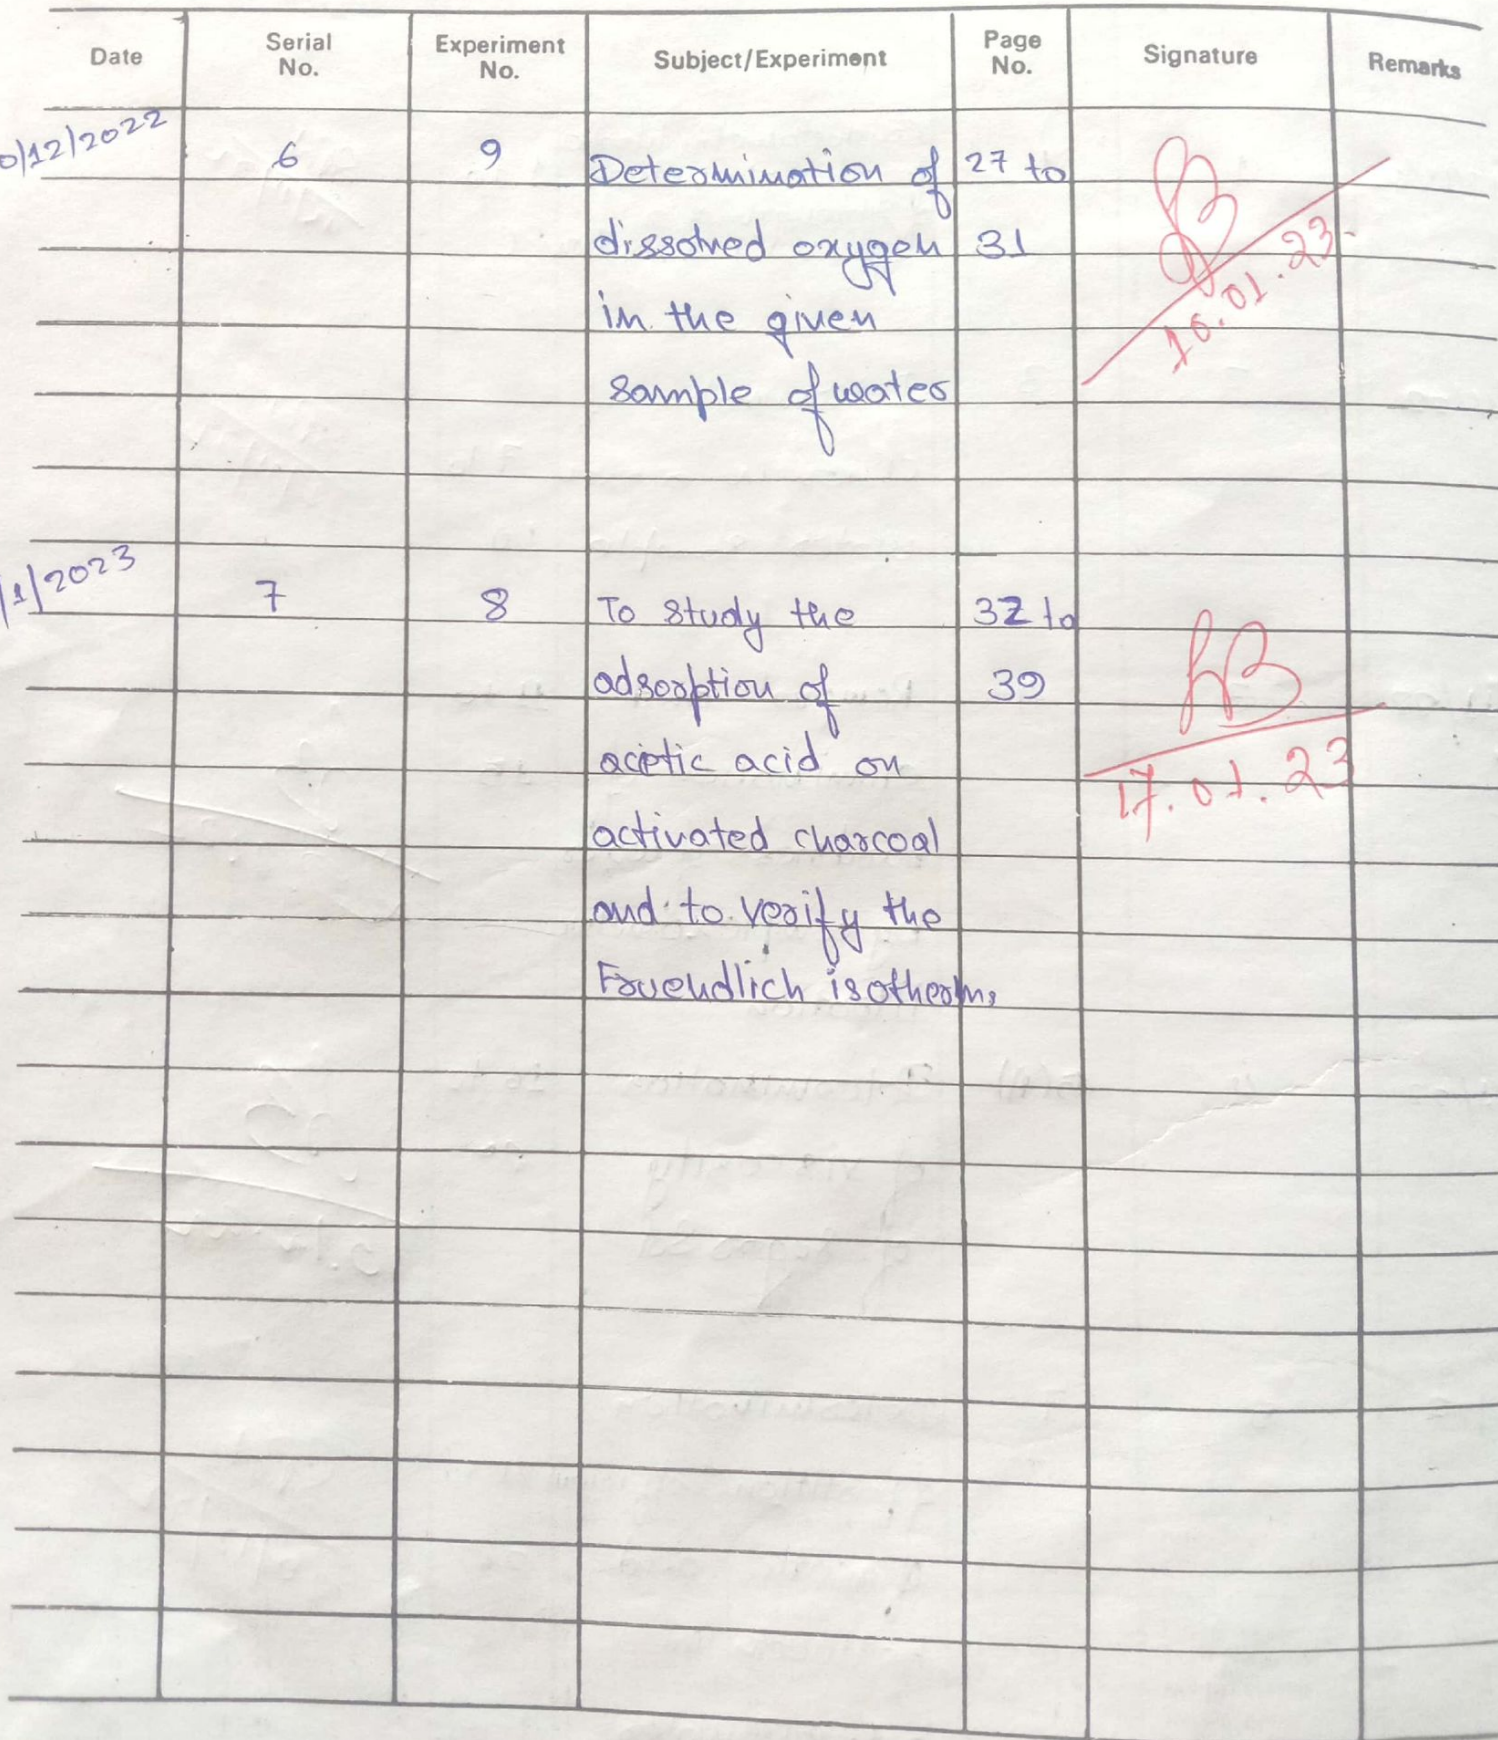 Date Serial No. Experiment No. Subject/Experiment Page No. Signature Remarks
0/12/2022 6 9 Determination of 27 to
dissolved oxygen 31
in the given
sample of water
16.01.23
/1/2023 7 8 To study the 32 to
adsorption of 39
acietic acid on
activated charcoal
and to verify the
Fruendlich isotherm,
17.01.23